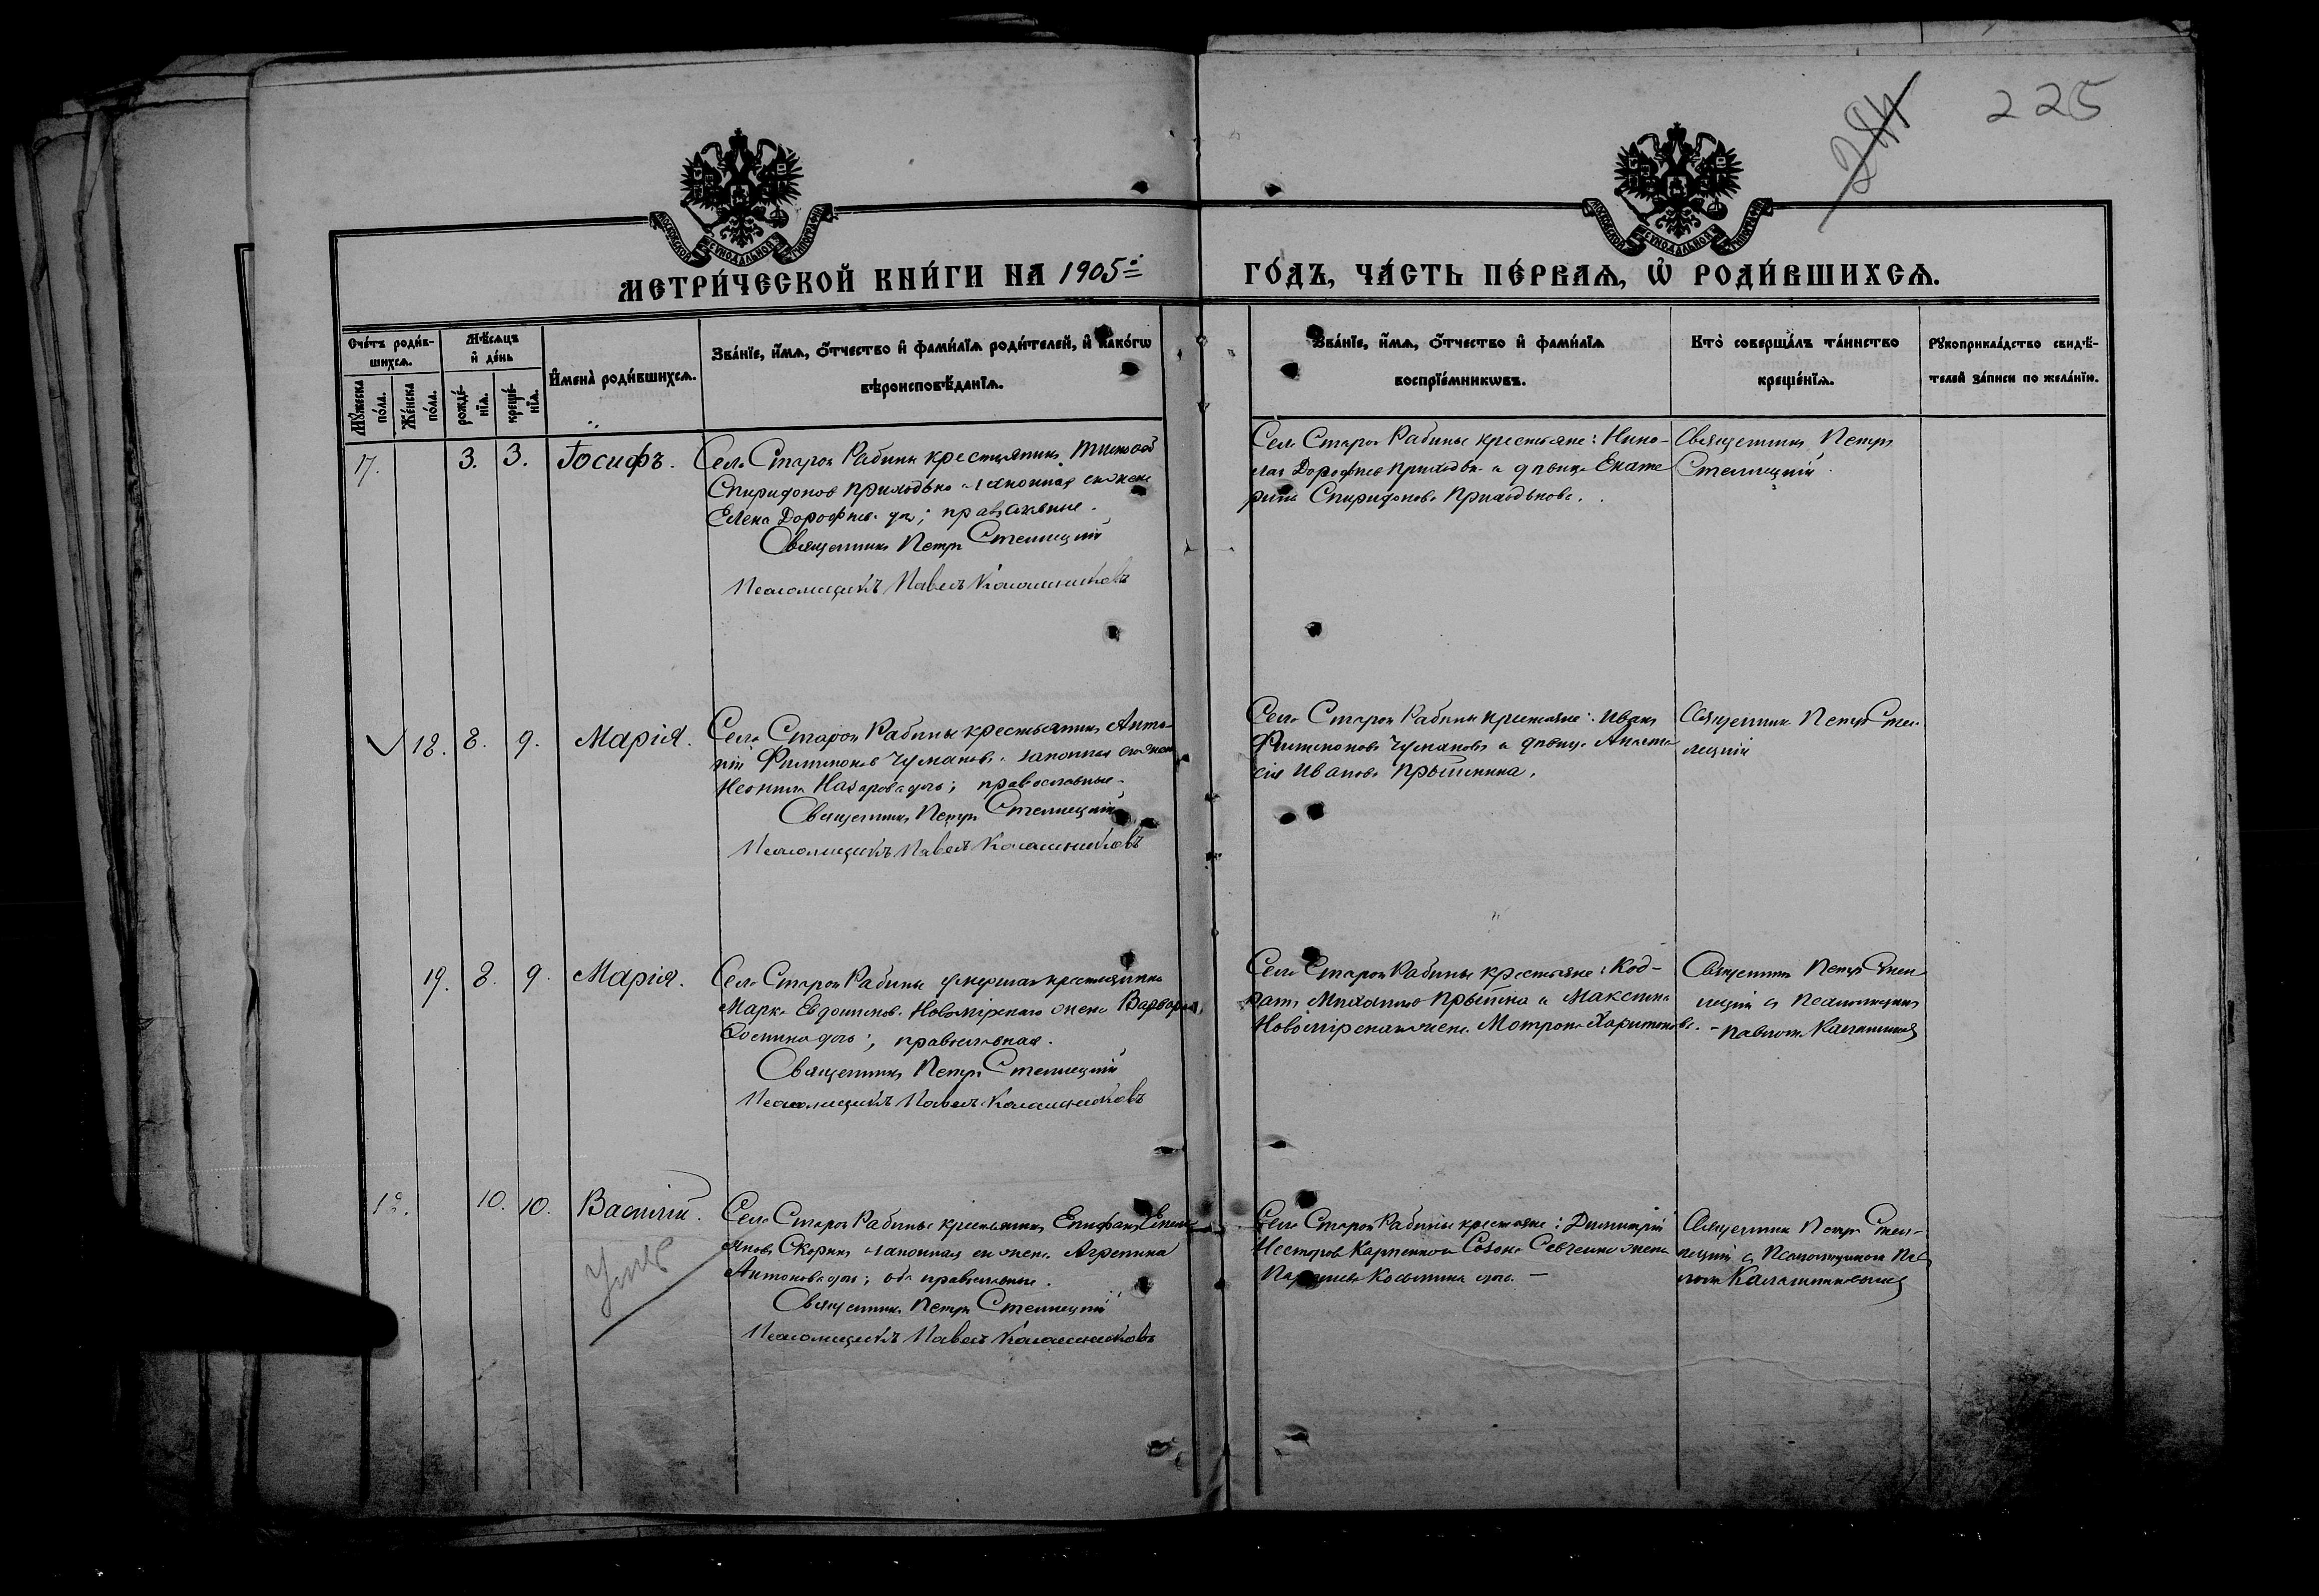 225
244
МОСКОВСКОЙ СѴНОДАЛЬНОЙ ТИПОГРАФІИ
МОСКОВСКОЙ СѴНОДАЛЬНОЙ ТИПОГРАФІИ
МЕТРИ́ЧЕСКОЙ КНИ́ГИ НА 1905й
ГО́ДЪ, ЧА́СТЬ ПЕ́РВАѦ, Ѡ҆ РОДИ́ВШИХСѦ.
Сче́тъ роди́вшихсѧ.
Мꙋ́жеска по́ла.
Же́нска по́ла.
Мѣ́сѧцъ и҆ де́нь
рожде́нїѧ.
креще́нїѧ.
И҆мена̀ роди́вшихсѧ.
Зва́нїе, и҆́мѧ, ѻ҆́тчество и҆ фами́лїѧ роди́телей, и҆ како́гѡ
вѣроисповѣ́данїѧ.
Зва́нїе, и҆́мѧ, ѻ҆́тчество и҆ фами́лїѧ
воспрїе́мникѡвъ.
Кто̀ соверша́лъ та́инство
креще́нїѧ.
Рꙋкоприкла́дство свидѣ́-
телей за́писи по жела́нїю.
17. 3. 3. Іосифъ.
Села Старой Рябины крестьянинъ Тимофей
Спиридоновъ Приходько и законная его жена
Елена Дорофеева дочь; православные.
Священникъ Петръ Стеллецкій
Псаломщикъ Павелъ Калашниковъ
Села Старой Рябины крестьяне: Нико-
лай Дорофеевъ Приходько и девица Екате
рина Спиридонова Приходькова.
Священникъ Петръ
Стеллецкій.
18. 8. 9. Марія.
Села Старой Рябины крестьянинъ Анто-
ній Филимоновъ Чумаковъ и законная его жена
Неонила Назарова дочь; православные.
Священникъ Петръ Стеллецкій
Псаломщикъ Павелъ Калашниковъ
Села Старой Рябины крестьяне: Иванъ
Филимоновъ Чумаковъ и девица Анаста
сія Иванова
Священникъ Петръ Стел
лецкій
19. 8. 9. Марія.
Села Старой Рябины умершаго крестьянина
Марка Евдокимова Новомірскаго жена Варвара
дочь; православная.
Священникъ Петръ Стеллецкій
Псаломщикъ Павелъ Калашниковъ
Села Старой Рябины крестьяне: Код-
ратъ Михаиловъ и Максима
Новомірскаго жена Мотрона Харитонова.
Священникъ Петръ Стел
лецкій съ Псаломщикомъ
Павломъ Калашниковымъ
18. 10. 10. Василій.
Села Старой Рябины крестьянинъ Епифанъ
Скоринъ и законная его жена Агрепина
Антонова дочь; оба православные.
Священникъ Петръ Стеллецкій
Псаломщикъ Павелъ Калашниковъ
Села Старой Рябины крестьяне: Димитрій
Несторовъ Карпенко и Созона Савченко жена
Косьмина дочь. —
Священникъ Петръ Стел-
лецкій съ Псаломщикомъ Пав
ломъ Калашниковымъ